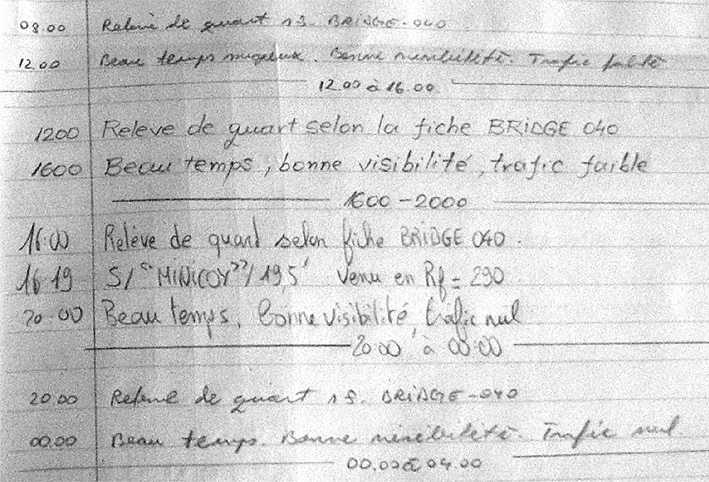 08.00 Relevé de quart 1S. BRIDGE-040
12.00 Beau temps nuageux. Bonne visibilité. Trafic faible
12.00 à 16.00
1200 Releve de quart selon la fiche BRIDGE 040
1600 Beau temps, bonne visibilité, trafic faible
1600-2000
16.00 Relève de quart selon fiche BRIDGE 040.
16.19 S/ "MINICOY"/19,5' Venu en Rf = 290
20.00 Beau temps, bonne visibilité, trafic nul
20.00 à 00.00
20.00 Relevé de quart 1S. BRIDGE-040
00.00 Beau temps. Bonne visibilité. Trafic nul.
00.00 à 04.00